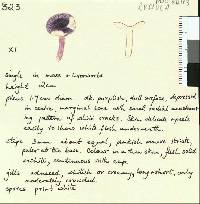 323
x1
Single in moss + liverworts
height 2cm
pileus 1·7 cm diam. dk. purplish, dull surface, depressed
in centre, marginal zone with small radial
pattern of white cracks. Skin delicate, peels
easily to show white flesh underneath.
stipe 3mm about equal, pinkish mauve striate,
paler at the base. Colour in a thin skin, flesh solid
whitish, continuous with cap.
gills adnexed, whitish or creamy, only
moderately crowded.
spore print white